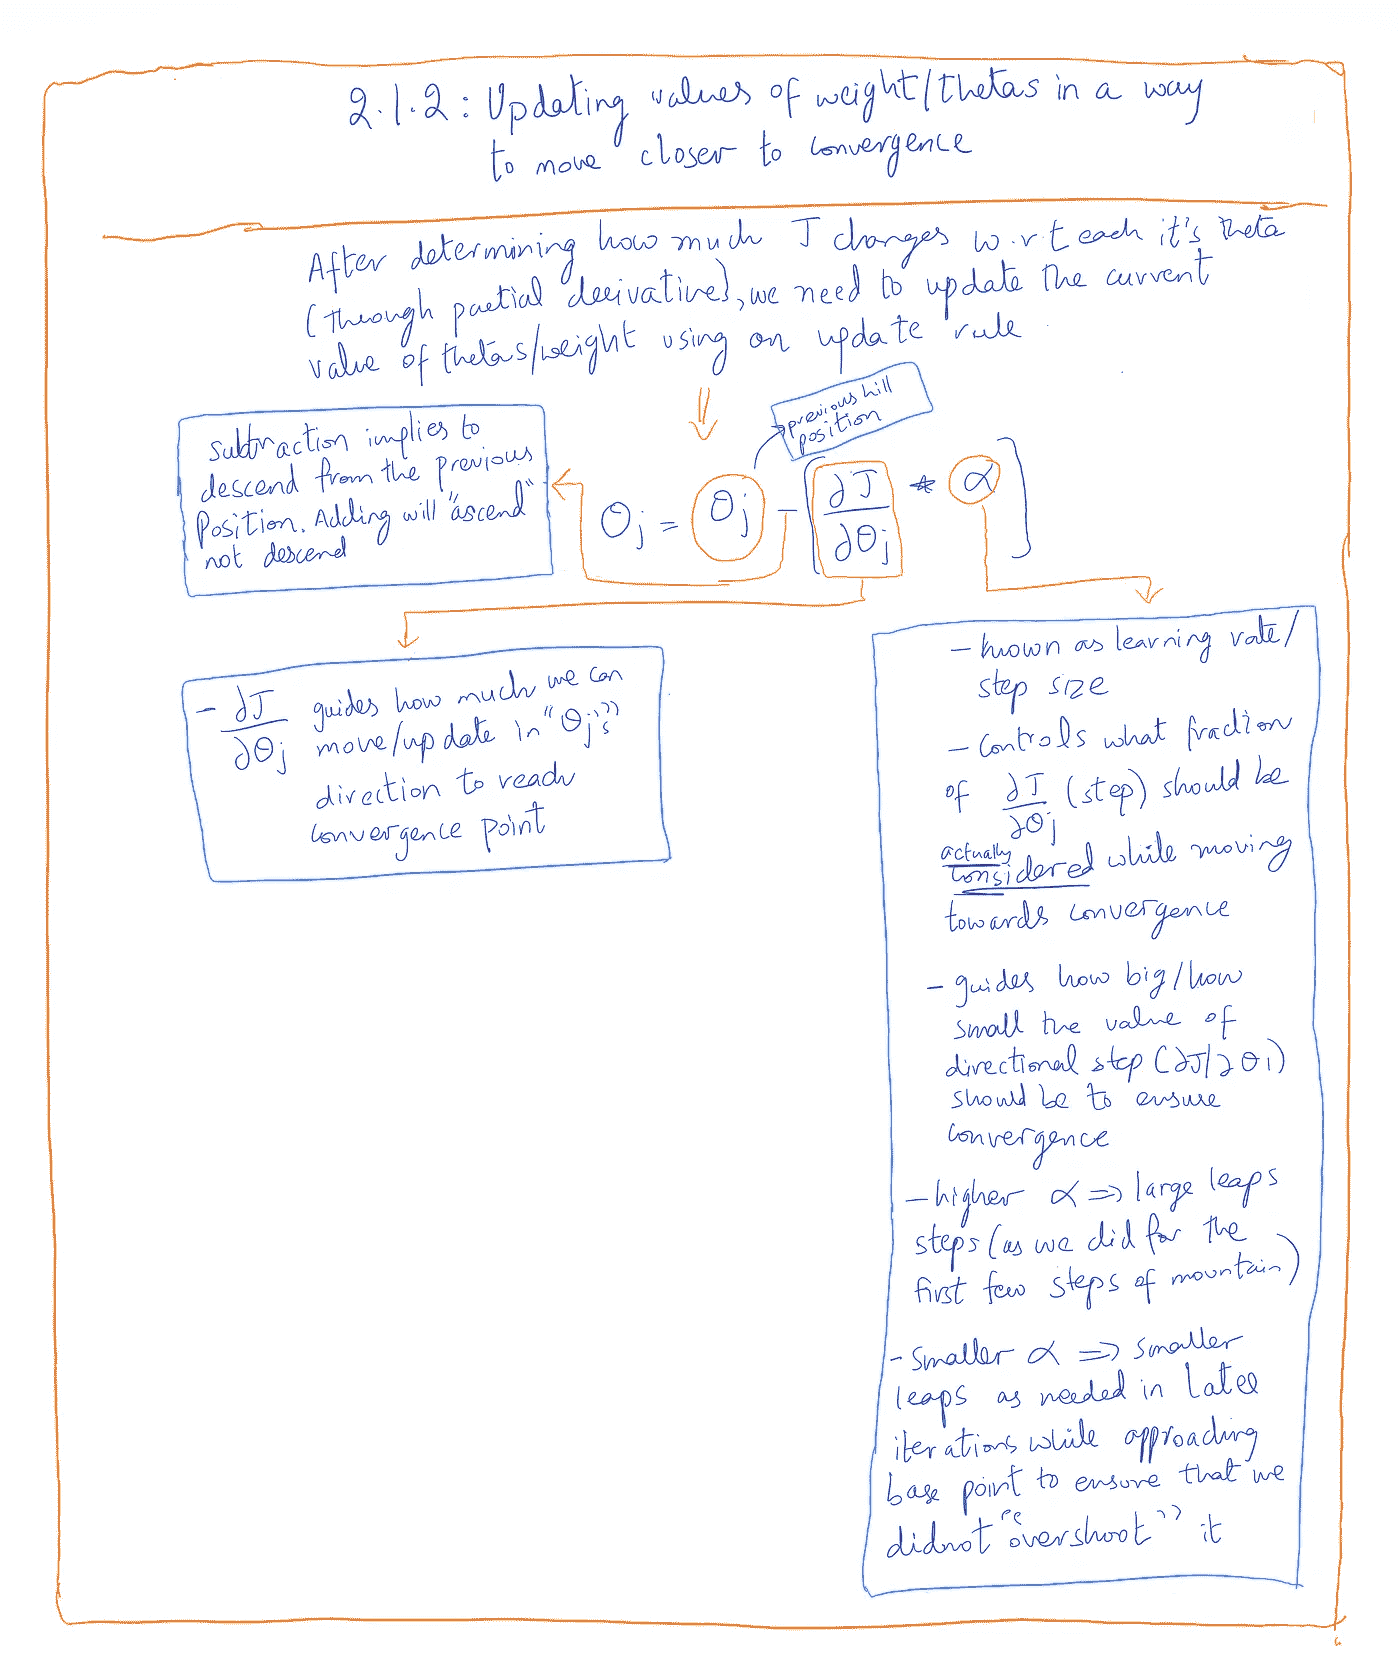 2.1.2: Updating values of weight/thetas in a way
to move closer to convergence
After determining how much J changes w.r.t each it's theta
(through partial derivative), we need to update the current
value of thetas/weight using an update rule
previous hill
position
subtraction implies to
descend from the previous
Position. Adding will "ascend"
not descend
θj = θj - [∂J/∂θj * α]
- ∂J/∂θj guides how much we can
move/update in "θj's"
direction to reach
convergence point
- known as learning rate/
step size
- controls what fraction
of ∂J/∂θj (step) should be
actually
considered while moving
towards convergence
- guides how big/how
small the value of
directional step (∂J/∂θj)
should be to ensure
convergence
- higher α => large leaps
steps (as we did for the
first few steps of mountain)
- smaller α => smaller
leaps as needed in later
iterations while approaching
base point to ensure that we
didnot "overshoot" it